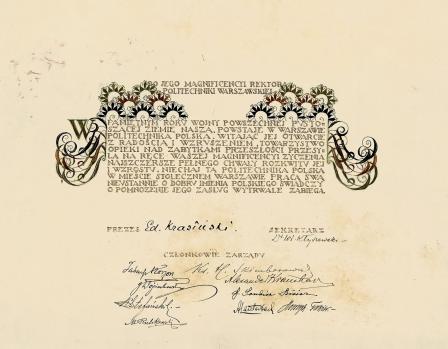 DO JEGO MAGNIFICENCYI REKTORA
POLITECHNIKI WARSZAWSKIEJ
W PAMIĘTNYM ROKU WOJNY POWSZECHNEJ PUSTO-
SZĄCEJ ZIEMIE NASZĄ, POWSTAJE W WARSZAWIE
POLITECHNIKA POLSKA. WITAJĄC JEJ OTWARCIE
Z RADOŚCIĄ I WZRUSZENIEM, TOWARZYSTWO
OPIEKI NAD ZABYTKAMI PRZESZŁOŚCI PRZESY-
ŁA NA RĘCE WASZEJ MAGNIFICENCYI ŻYCZENIA
NAJSZCZERSZE PEŁNEGO CHWAŁY ROZKWITU JEJ
I WZROSTU. NIECHAJ TA POLITECHNIKA POLSKA
W MIEŚCIE STOŁECZNEM WARSZAWIE PRACĄ SWĄ
NIEUSTANNIE O DOBRU IMIENIA POLSKIEGO ŚWIADCZY
O POMNOŻENIE JEGO ZASŁUG WYTRWALE ZABIEGA.
PREZES Ed. Krasiński. SEKRETARZ
CZŁONKOWIE ZARZĄDU